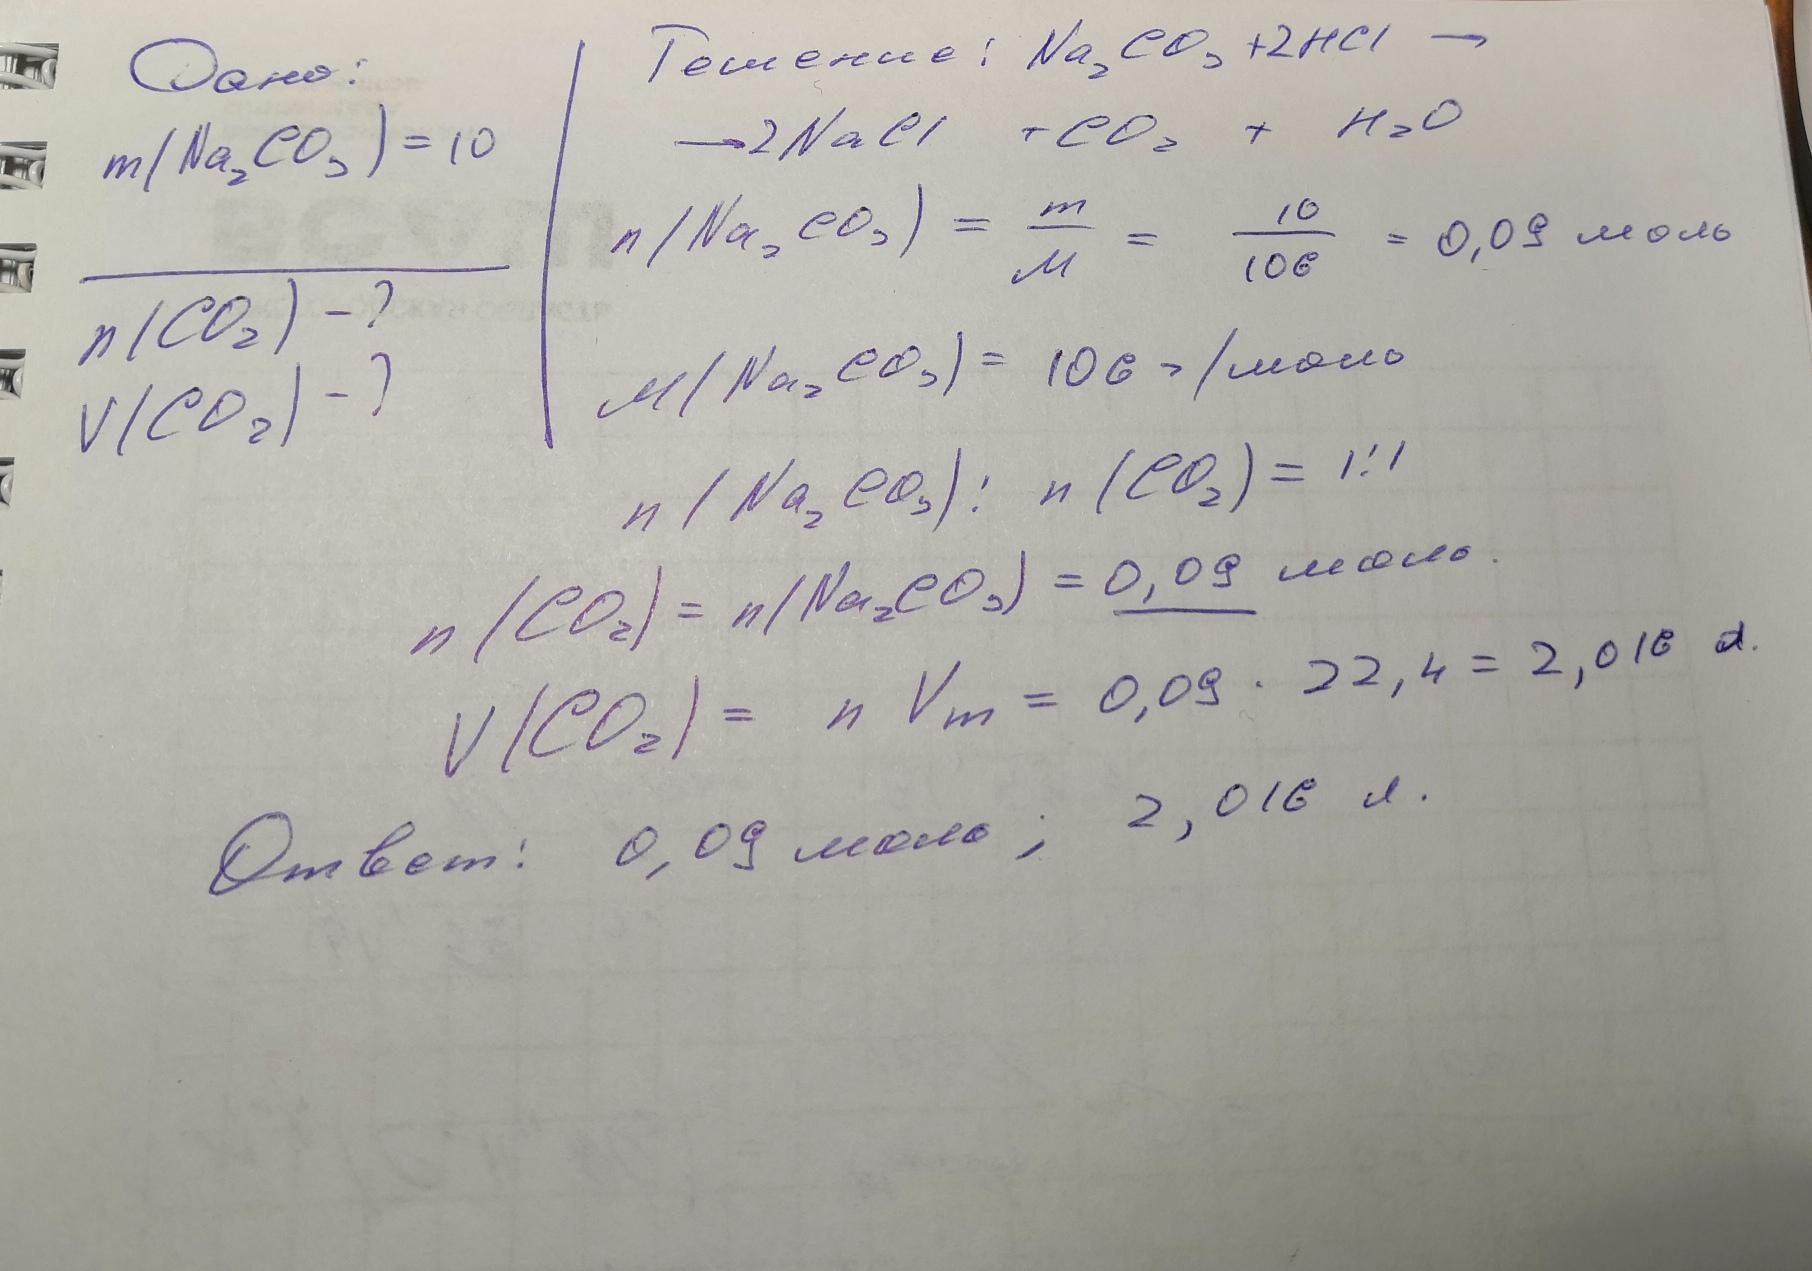 Дано:
m(Na₂CO₃) = 10
n(CO₂) - ?
V(CO₂) - ?
Решение: Na₂CO₃ + 2HCl →
→ 2NaCl + CO₂ + H₂O
n(Na₂CO₃) = m/M = 10/106 = 0,09 моль
M(Na₂CO₃) = 106 г/моль
n(Na₂CO₃) : n(CO₂) = 1:1
n(CO₂) = n(Na₂CO₃) = 0,09 моль.
V(CO₂) = n Vm = 0,09 · 22,4 = 2,016 л.
Ответ: 0,09 моль; 2,016 л.